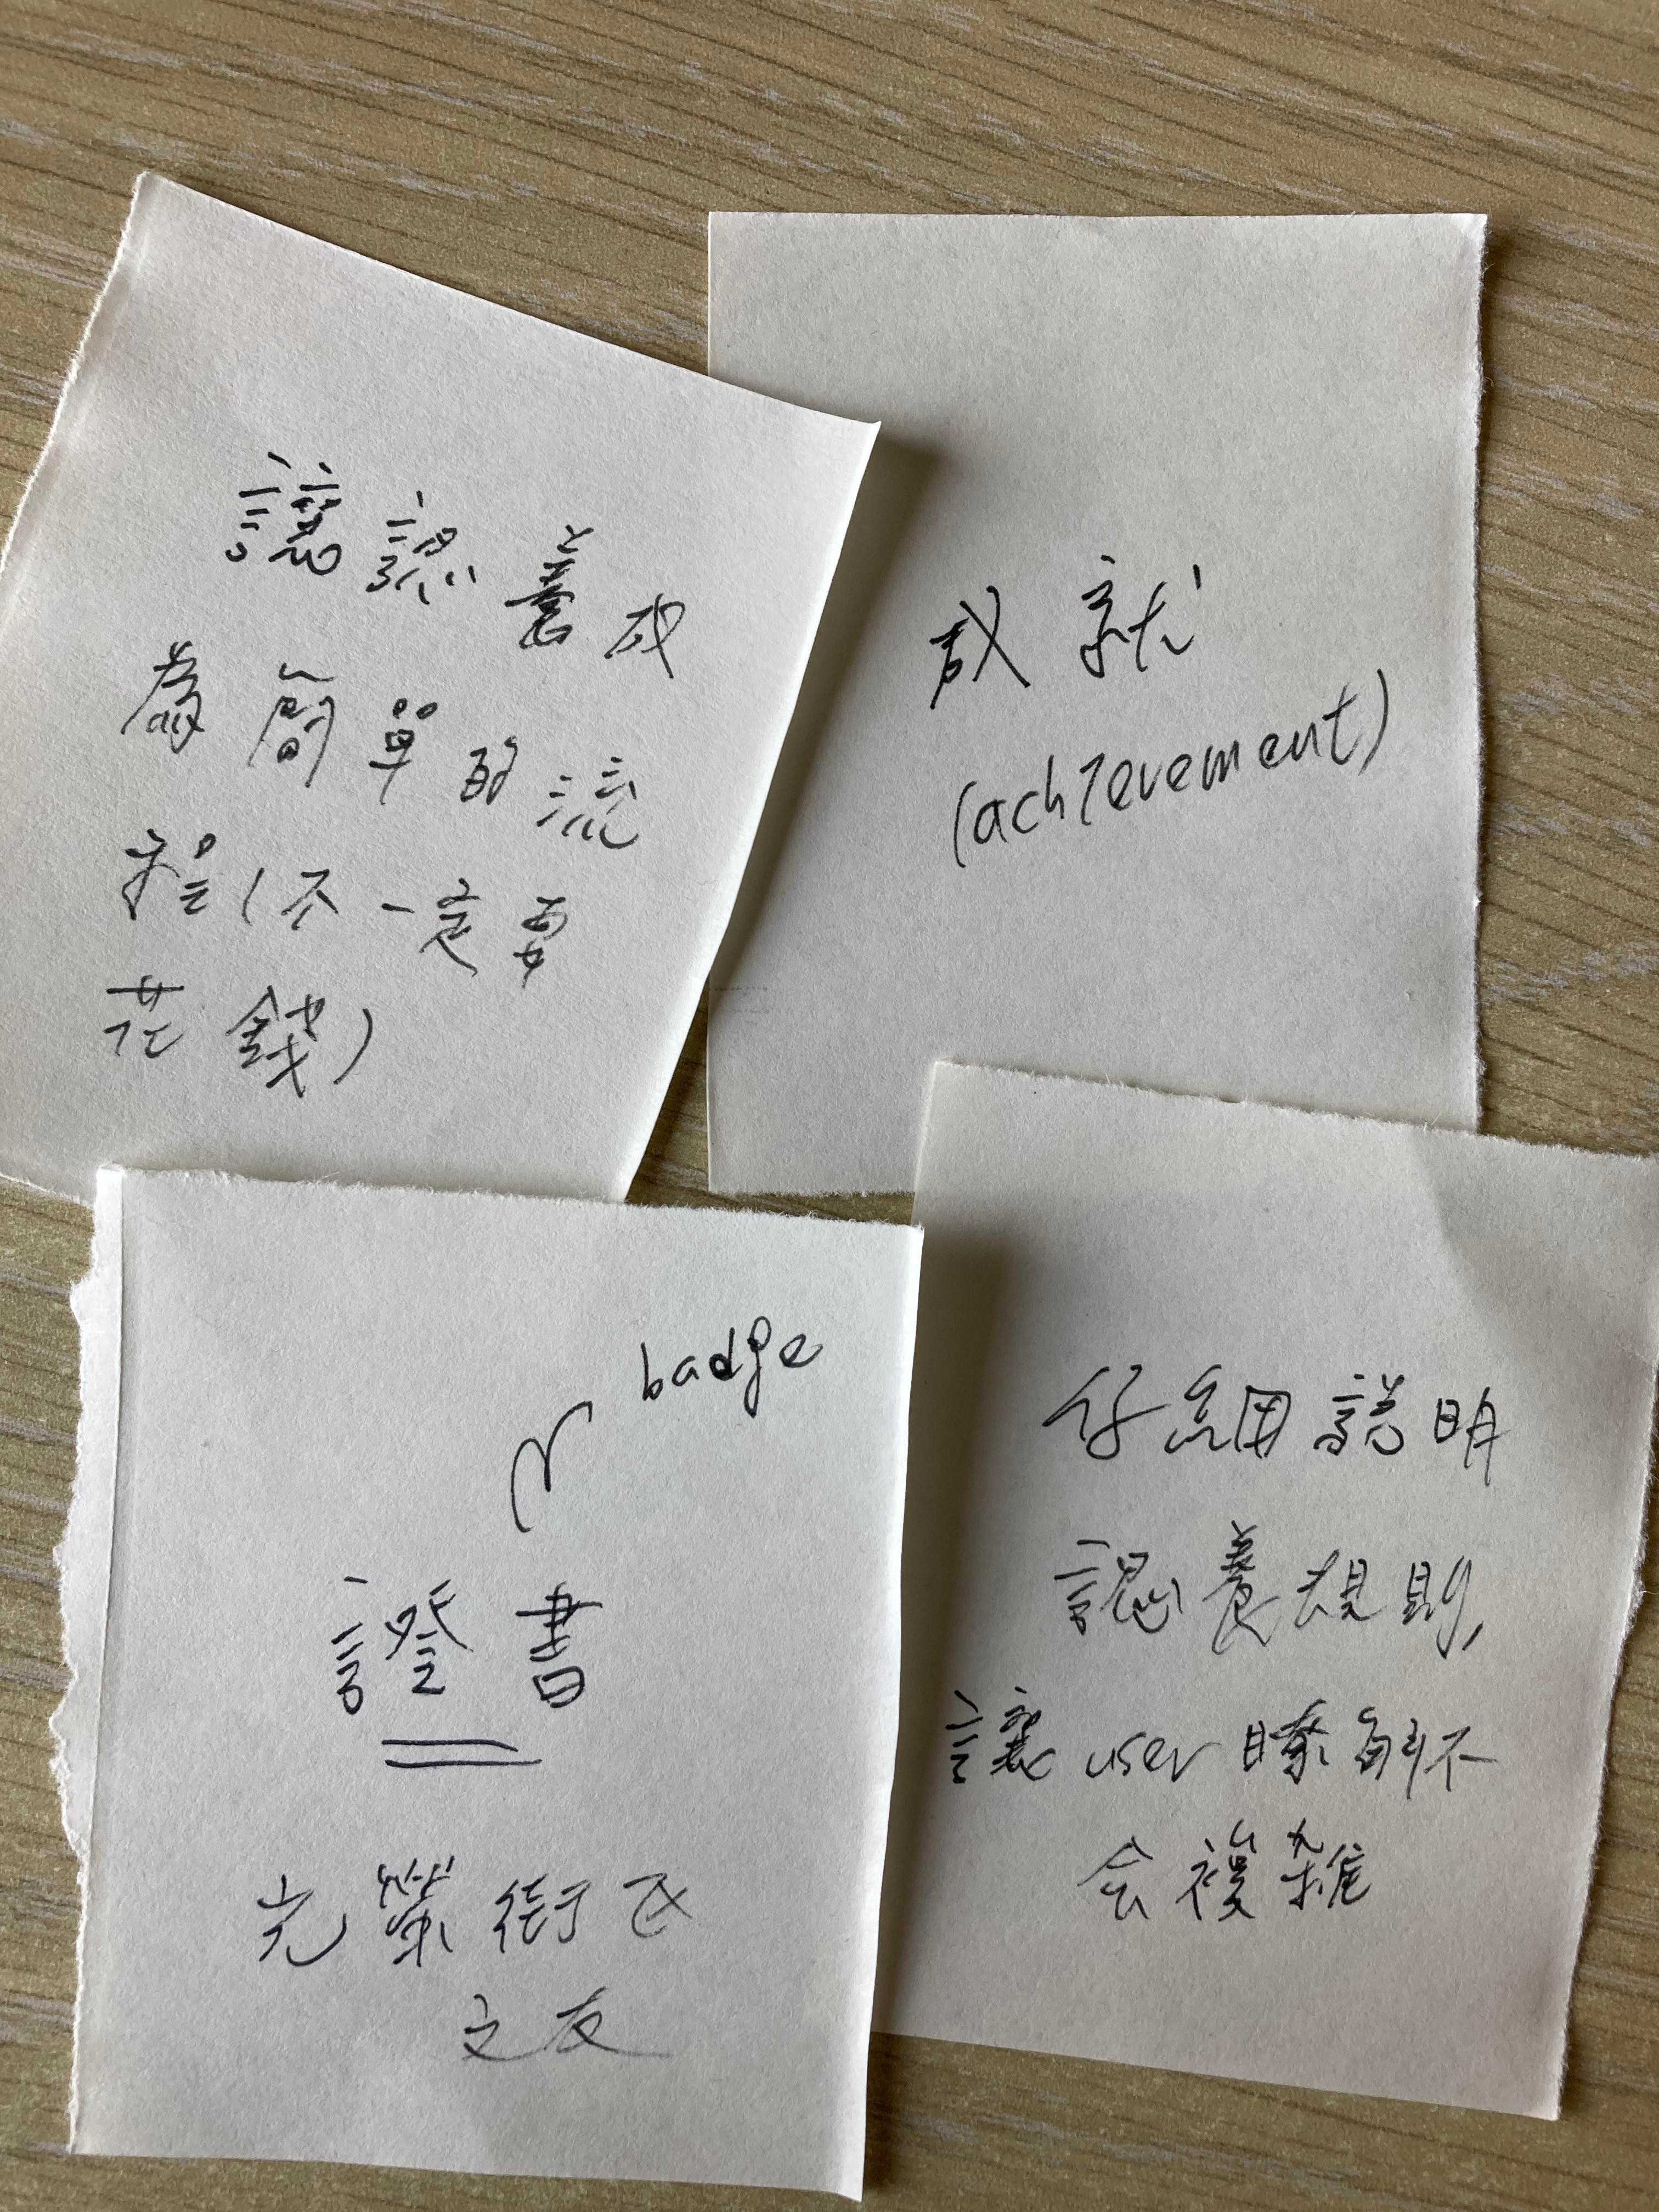 讓認養成
為簡單的流
程(不一定要
花錢)
成就
(achievement)
badge
證書
光榮街民
之友
仔細說明
認養規則,
讓user瞭解不
会複雜